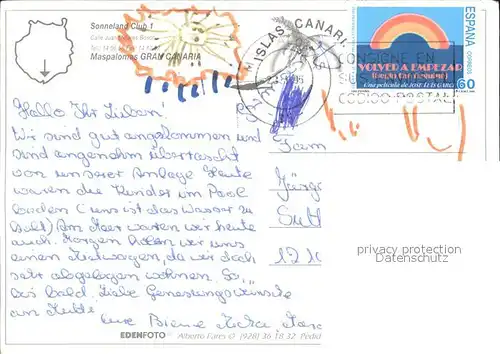 Sonneland Club 1
Maspalomas GRAN CANARIA
ISLAS CANARI
CONSIGNE EN
CODIGO POSTAL
VOLVER A EMPEZAR
(begin the beguine)
Una película de JOSE LUIS GARCI
ESPAÑA
CORREOS
60
Hallo Ihr Lieben!
Wir sind gut angekommen und
sind angenehm überrascht
von unserer Anlage. Heute
waren die Kinder im Pool
baden (uns ist das Wasser zu
kalt). Am Meer waren wir heute
auch. Morgen holen wir uns
einen Mietwagen, da wir doch
sehr abgelegen wohnen. So,
bis bald. Liebe Genesungswünsche
an
Eure
Fam
Jürge
12
privacy protection
Datenschutz
EDENFOTO Alberto Fares © (928) 36 18 32